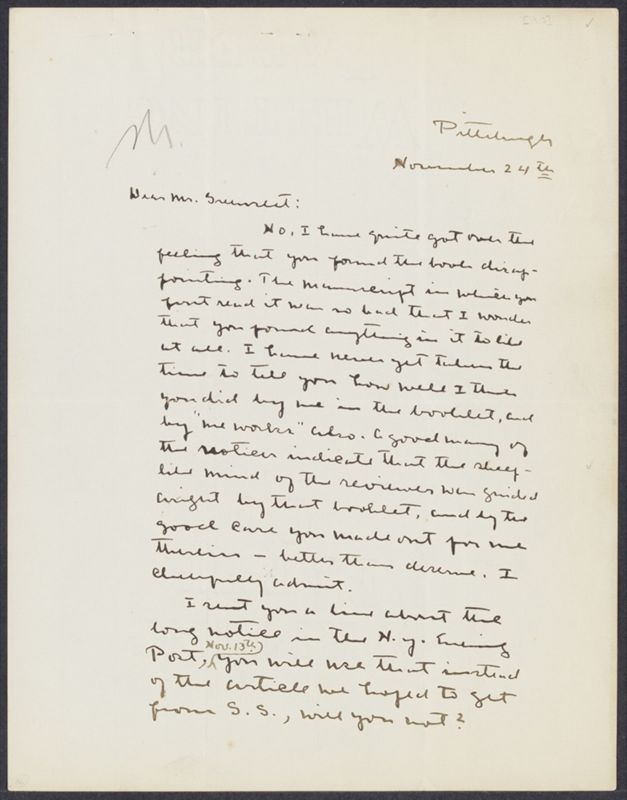 Pittsburgh
November 24th
Dear Mr. Greenslet:
No, I have quite got over the
feeling that you found the book disap-
pointing. The manuscript in which you
first read it was so bad that I wonder
that you found anything in it to like
at all. I have never yet taken the
time to tell you how well I think
you did by me in the booklet, and
by "me works" also. A good many of
the notices indicate that the sheep-
like mind of the reviewer was guided
aright by that booklet, and by the
good case you made out for me
therein – better than deserve, I
cheerfully admit.
I sent you a line about the
long notice in the N.Y. Evening
Post, (Nov. 13th) you will use that instead
of the article we hoped to get
from S.S., will you not?